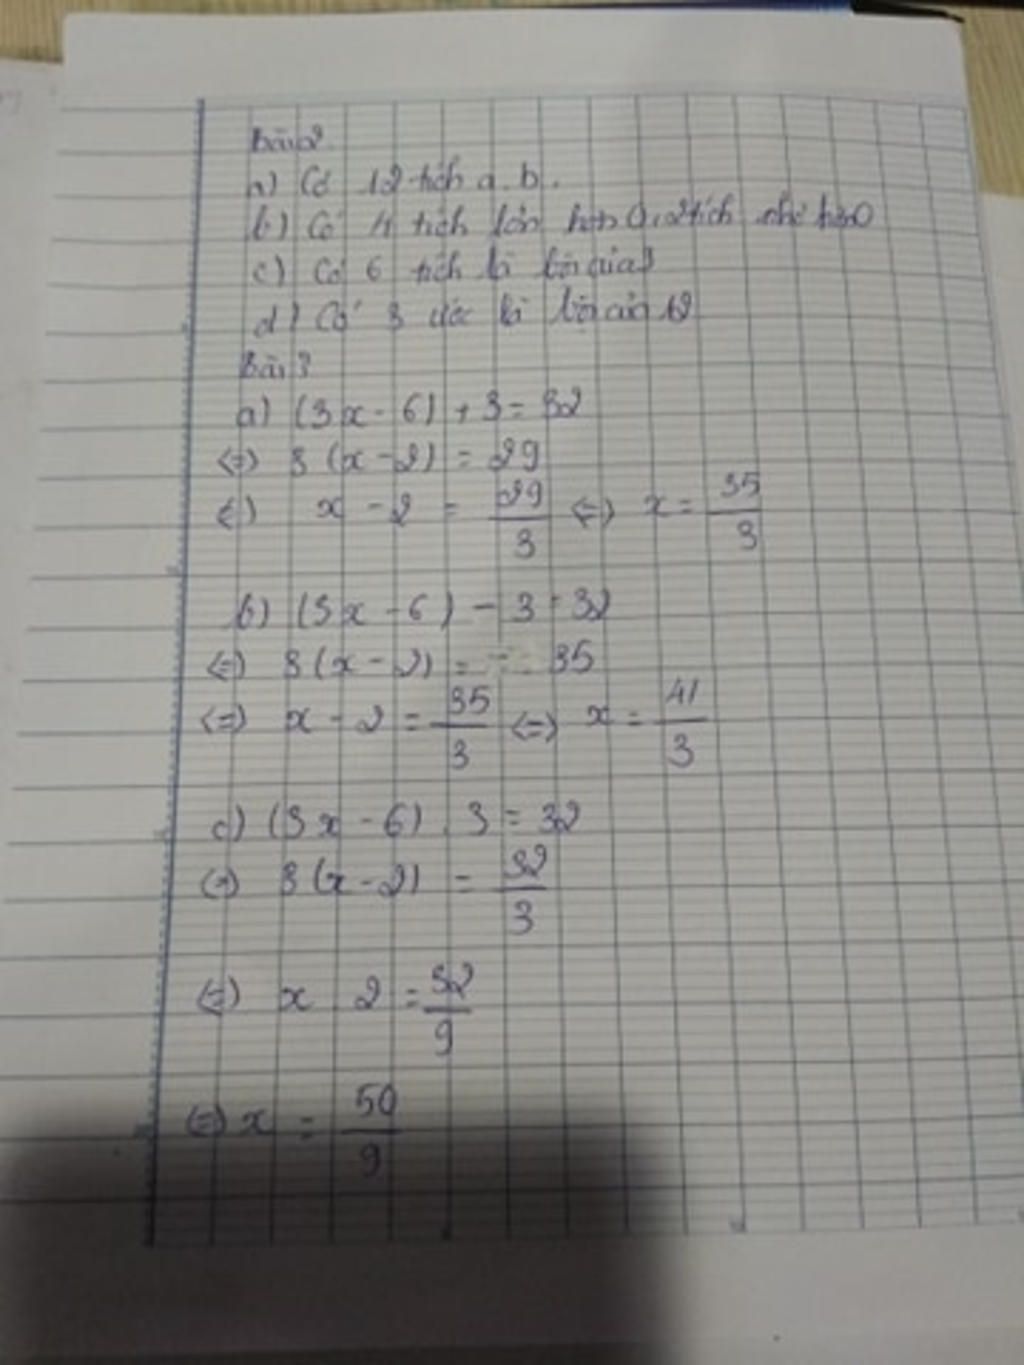 Bài 2
a) Có 12 tích a.b.
b) Có tích lớn hơn 0, tích nhỏ hơn 0
c) Có 6 tích là bội của
d) Có 3 ước là bội của 12
Bài 3
a) (3x - 6) + 3 = 32
<=> 3 (x - 2) = 29
<=> x - 2 = 29/3 <=> x = 35/3
b) (3x - 6) - 3 = 32
<=> 3 (x - 2) = 35
<=> x - 2 = 35/3 <=> x = 41/3
c) (3x - 6) . 3 = 32
<=> 3 (x - 2) = 32/3
<=> x 2 = 32/9
<=> x = 50/9